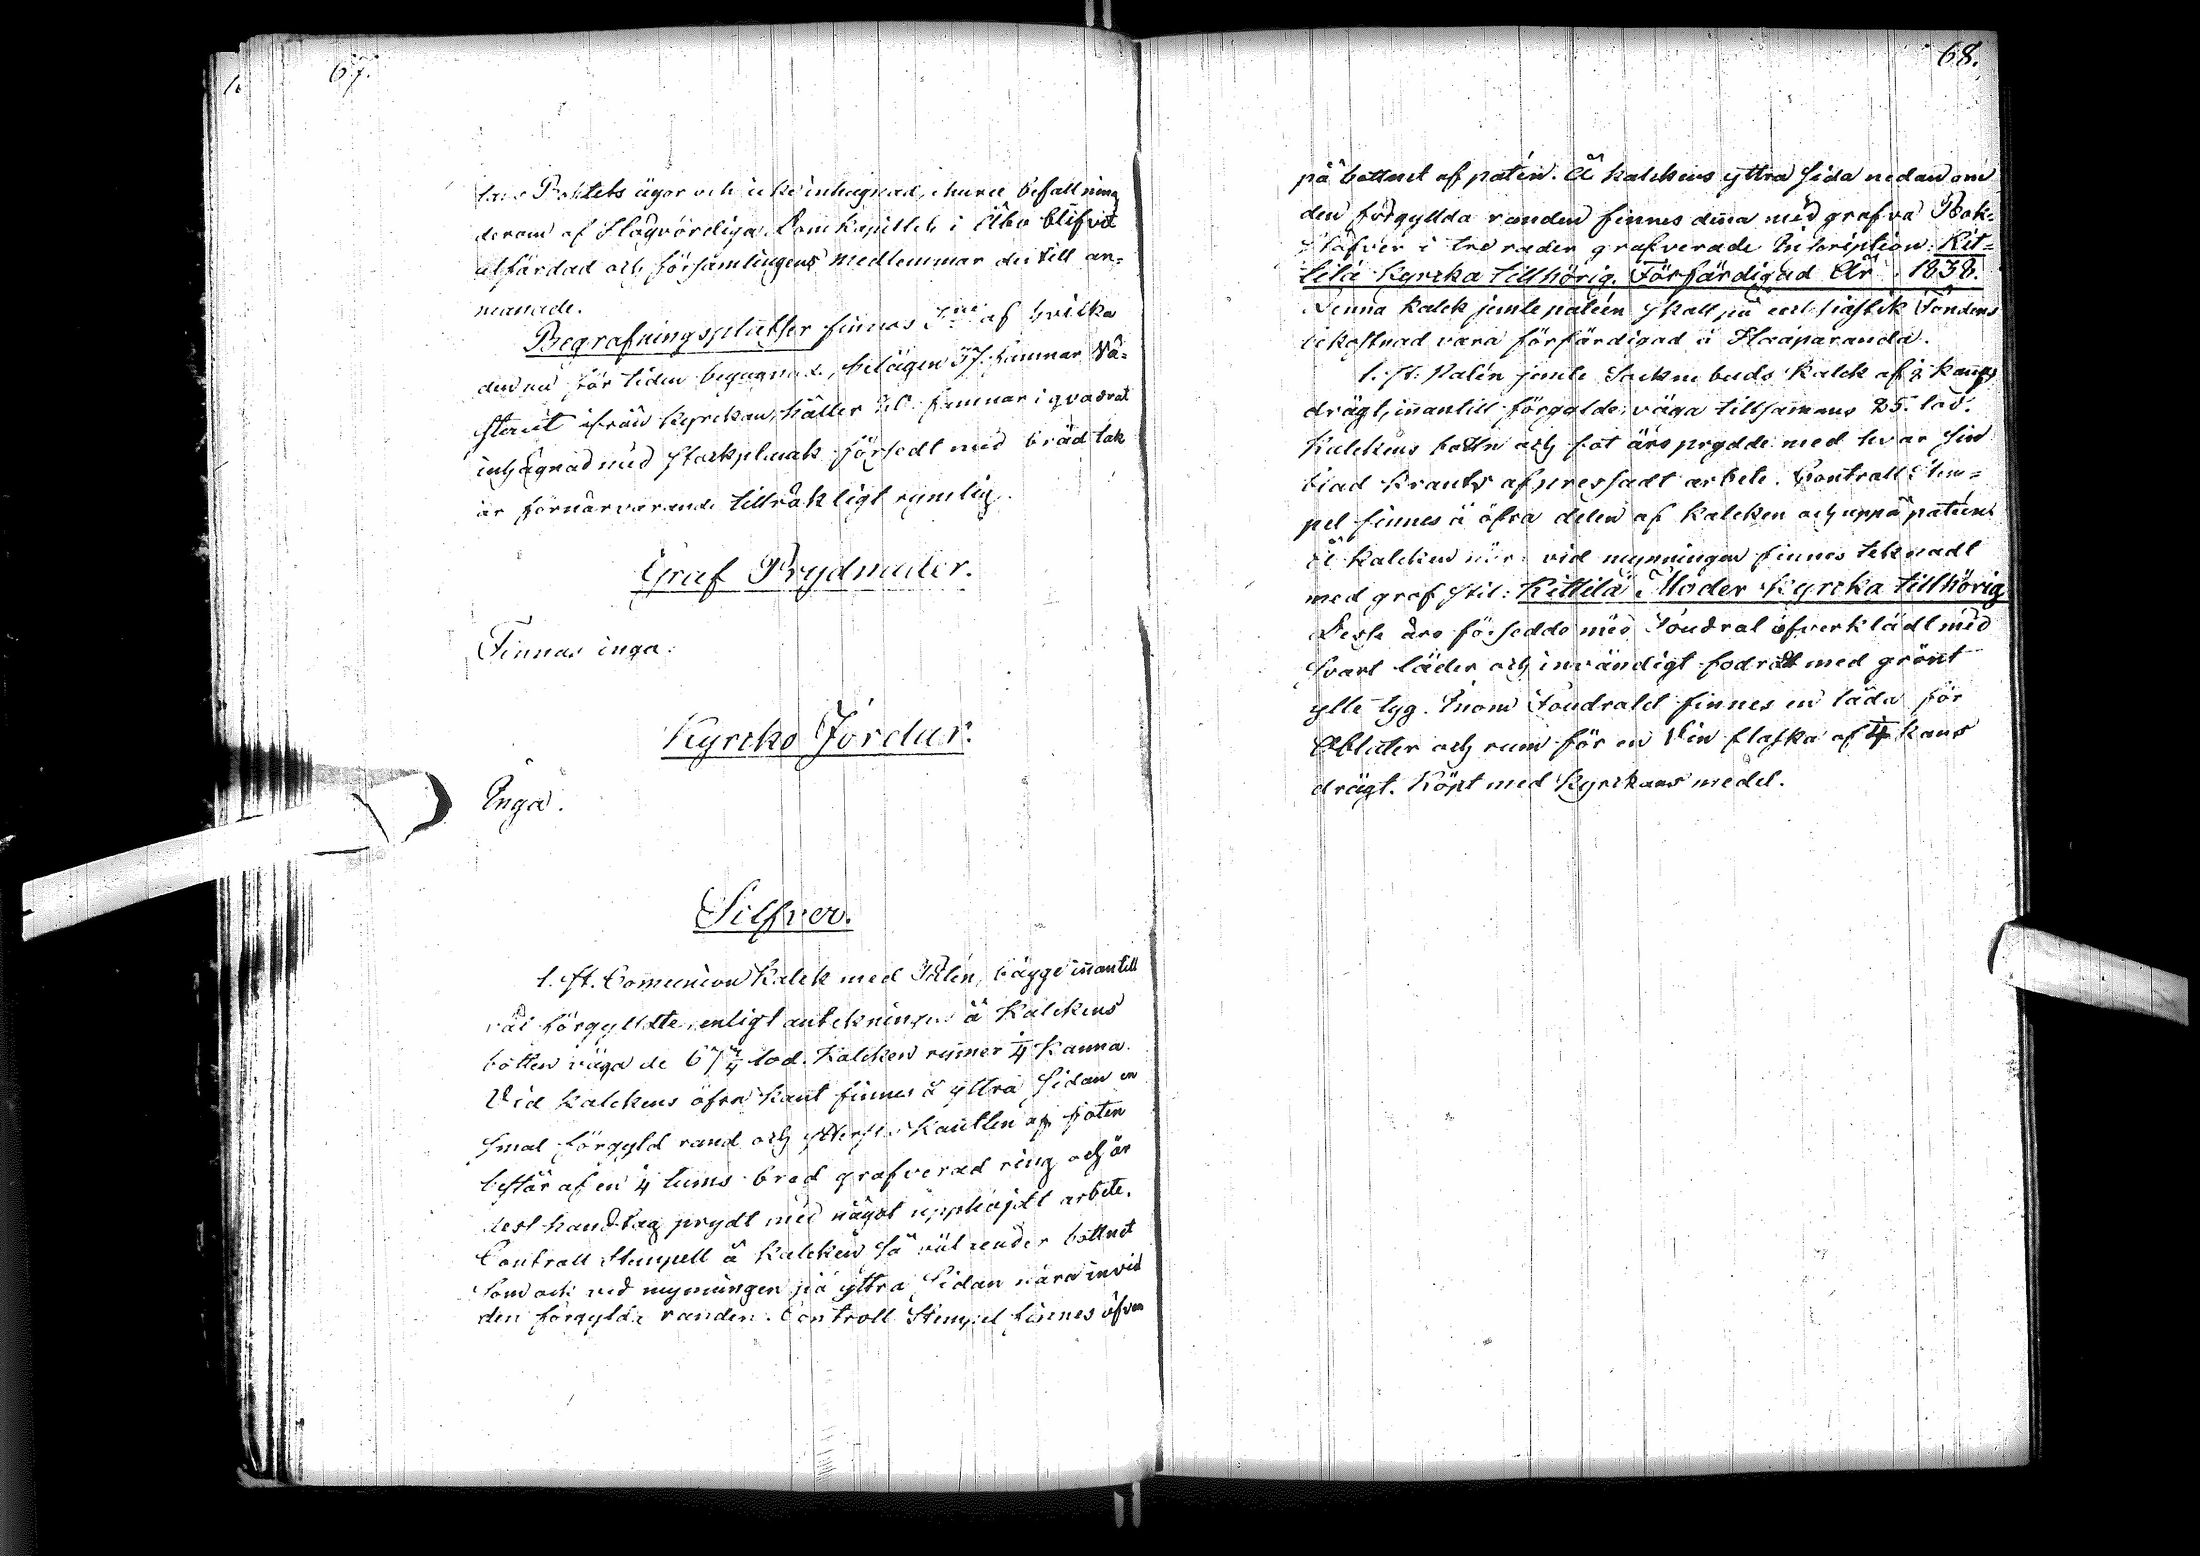 67.
ägor och icke inhägnad, churu befallning
derom af Högvördiga Domkapitlet i Åbo blifvit
utfärdad och församlingens medlemmar der till an=
manade.
Begrafningsplatser finnas af hvilka
den nu för tiden begagnade, belägen 37. famnar Vä=
sterut ifrån Kyrckan, håller famnar i qvadrat
inhägnad med stockplank försedt med brädtak
är förnärvarande tillräkligt rymlig.
Graf Prydnader.
Finnas inga.
Kyrcko Jordar.
Inga.
Silfver.
1. st. Communion Kalck med Patén, bägge innantill
väl förgyllste, enligt antekningen å Kalckens
botten väga de 67 lod. Kalcken rymer 1/4 Kanna.
Vid kalckens öfra kant finnes å yttra sidan en
smal förgyld rand och ytterste kantten af foten
består af en 4 tums bred grafverad ring och är
dest handtag prydt med något upphöjdt arbete.
Controll Stempell å Kalcken så väl under bottnet
som och vid mynningen på yttra sidan nära invid
den förgylda randen. Controll Stempel finnes öfven
68.
på bottnet af patén. Å kalckens yttra sida nedan om
den förgyllda randen finnes denna med grafva Bok=
stäfver i tre rader grafverade Inscription: Kit=
tilä Kyrcka tillhörig. Förfärdigad År 1838.
Denna kalck jemte patéen skall på Fondens
bekostnad vara förfärdigad i Haaparanda.
1. st. Patén jemte Sockne buds Kalck af kanns
drägt, innantill förgylde, väga tillsammans 25. lod.
Kalckens bottn och fot äro prydde med hvar sin
blad Krants af pressadt arbete. Controll Stem=
pel finnes å öfra delen af kalcken och uppå patéen.
Å kalcken när vid mynningen finnes teknadt
med graf stil: Kittilä Moder Kyrcka tillhörig
Desse äro försedde med Foudral öfverklädt med
svart läder och invändigt fodradt med grönt
ylle tyg. Inom Foudralet finnes en låda för
Oblater och rum för en Vin flaska af 1/4 kans
drägt. Köpt med Kyrckans medel.